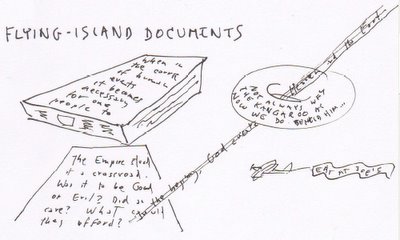 FLYING-ISLAND DOCUMENTS
When in
the course
of human
events
it becomes
necessary
for one
people to
In the beginning, God create Heaven and the Earth
NOT ALWAYS WAS
THE KANGAROO AS
NOW WE DO BEHOLD HIM...
EAT AT JOE'S
The Empire stood
at a crossroad.
Was it to be Good
or Evil? Did
care? What could
they afford?